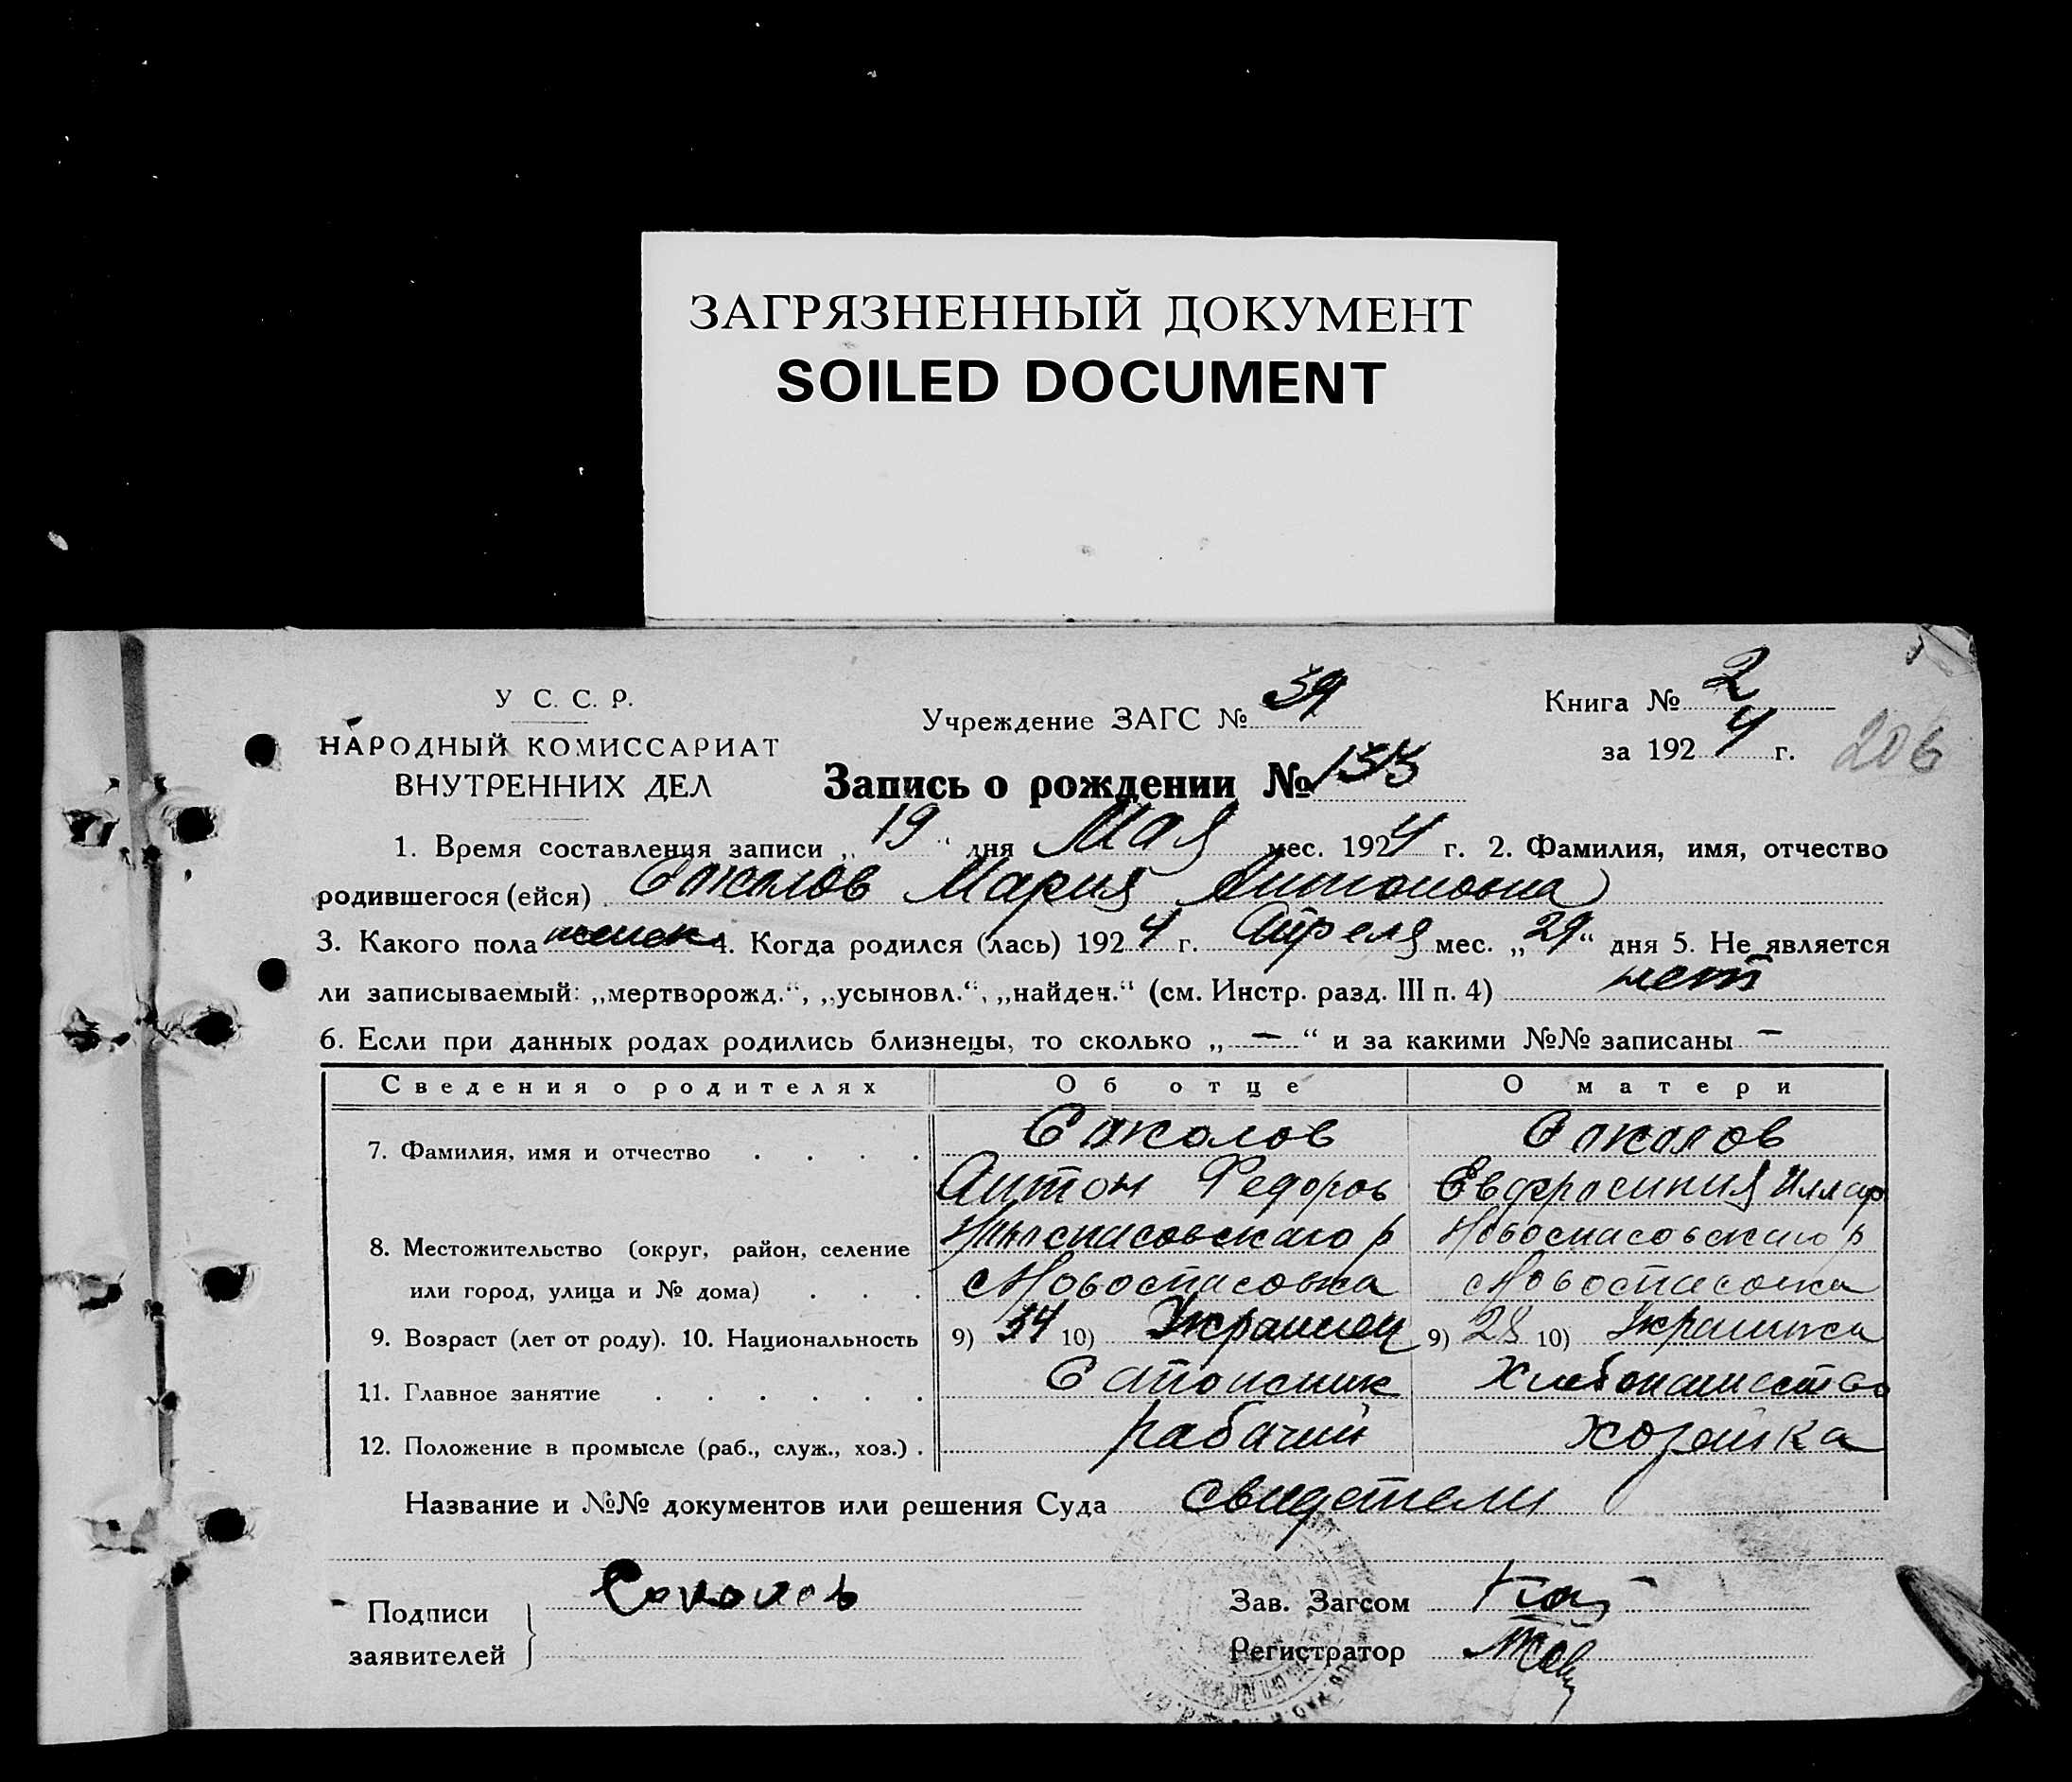 ЗАГРЯЗНЕННЫЙ ДОКУМЕНТ
SOILED DOCUMENT
У С. С. Р.
НАРОДНЫЙ КОМИССАРИАТ
ВНУТРЕННИХ ДЕЛ
Учреждение ЗАГС № 39
Книга № 2
за 1924 г.
206
Запись о рождении № 133
1. Время составления записи „19“ дня Мая мес. 1924 г. 2. Фамилия, имя, отчество
родившегося (ейся) Сакалов Мария Антоновна
3. Какого пола женск 4. Когда родился (лась) 1924 г. Апреля мес. „29“ дня 5. Не является
ли записываемый: „мертворожд.“, „усыновл.“, „найден.“ (см. Инстр. разд. III п. 4) нет
6. Если при данных родах родились близнецы, то сколько „—“ и за какими №№ записаны —
Сведения о родителях Об отце О матери
7. Фамилия, имя и отчество . . . . Сакалов Сакалов
Антон Федоров Евфросиния Иллар
8. Местожительство (округ, район, селение Новоспасовскаго р Новоспасовскаго р
или город, улица и № дома) . . . Новоспасовка Новоспасовка
9. Возраст (лет от роду). 10. Национальность 9) 34 10) Украинец 9) 28 10) Украинка
11. Главное занятие . . . . . . Сапожник Хлебопашество
12. Положение в промысле (раб., служ., хоз.) . рабачий хозяйка
Название и №№ документов или решения Суда свидетели
Подписи заявителей Соколов
Зав. Загсом
Регистратор